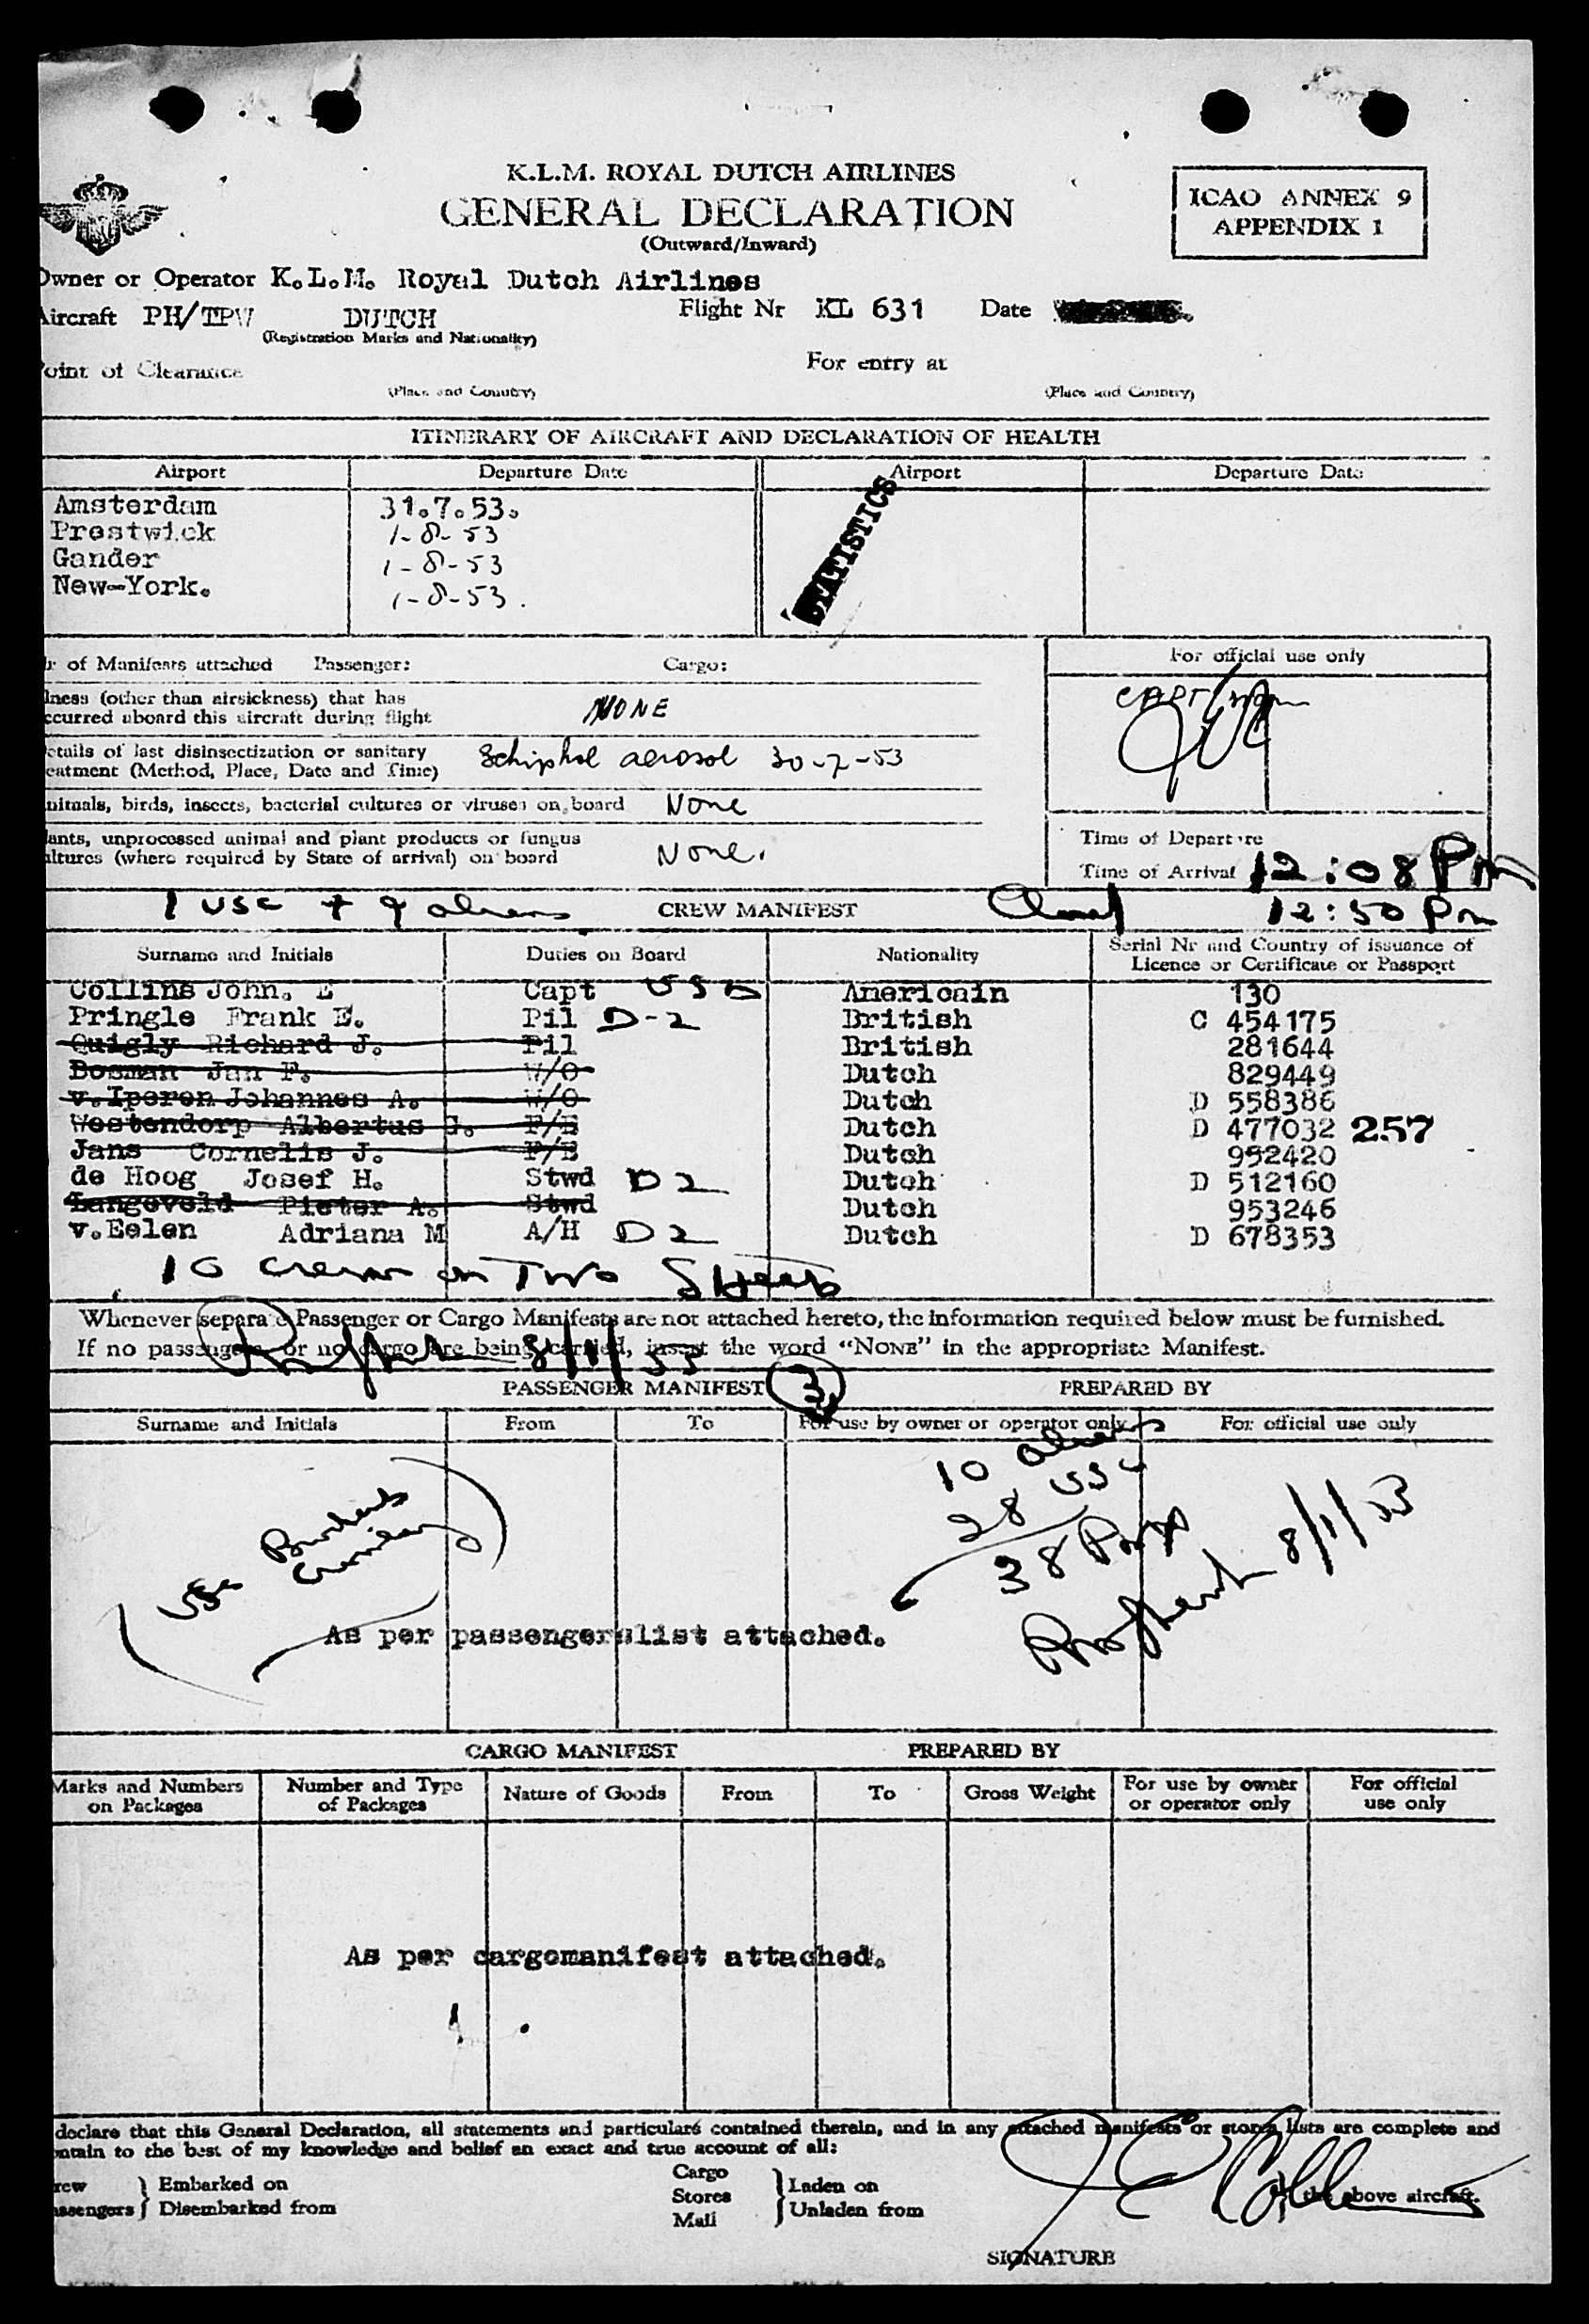 K.L.M. ROYAL DUTCH AIRLINES
GENERAL DECLARATION
(Outward/Inward)
ICAO ANNEX 9
APPENDIX 1
Owner or Operator K.L.M. Royal Dutch Airlines
Aircraft PH/TPW DUTCH Flight Nr KL 631 Date
(Registration Marks and Nationality)
Point of Clearance For entry at
(Place and Country) (Place and Country)
ITINERARY OF AIRCRAFT AND DECLARATION OF HEALTH
Airport Departure Date Airport Departure Date
Amsterdam 31.7.53.
Prestwick 1-8-53
Gander 1-8-53
New-York. 1-8-53.
STATISTICS
Nr of Manifests attached Passenger: Cargo:
For official use only
lness (other than airsickness) that has
ccurred aboard this aircraft during flight NONE
etails of last disinsectization or sanitary
eatment (Method, Place, Date and Time) Schiphol aerosol 30-7-53
nimals, birds, insects, bacterial cultures or viruses on board None
ants, unprocessed animal and plant products or fungus
ultures (where required by State of arrival) on board None.
Time of Departure
Time of Arrival 12:08 Pm
1 USC + 9 aliens CREW MANIFEST 12:50 Pm
Surname and Initials Duties on Board Nationality Serial Nr and Country of issuance of
Licence or Certificate or Passport
Collins John. E Capt USC Americain 130
Pringle Frank E. Pil D-2 British C 454175
Quigly Richard J. Pil British 281644
Bosman Jan F. W/O Dutch 829449
v.Iperen Johannes A. W/O Dutch D 558386
Westendorp Albertus G. F/E Dutch D 477032 257
Jans Cornelis J. F/E Dutch 992420
de Hoog Josef H. Stwd D 2 Dutch D 512160
Langeveld Pieter A. Stwd Dutch 953246
v.Eelen Adriana M A/H D 2 Dutch D 678353
10 Crew on Two Sheets
Whenever separate Passenger or Cargo Manifests are not attached hereto, the information required below must be furnished.
If no passengers or no cargo are being carried, insert the word “NONE” in the appropriate Manifest.
8/1/53
PASSENGER MANIFEST 3 PREPARED BY
Surname and Initials From To For use by owner or operator only For official use only
10 aliens
28 USC
38
8/1/53
USC
As per passengerslist attached.
CARGO MANIFEST PREPARED BY
Marks and Numbers on Packages Number and Type of Packages Nature of Goods From To Gross Weight For use by owner or operator only For official use only
As per cargomanifest attached.
declare that this General Declaration, all statements and particulars contained therein, and in any attached manifests or stores lists are complete and
ontain to the best of my knowledge and belief an exact and true account of all:
rew Embarked on Cargo Laden on
assengers Disembarked from Stores Unladen from the above aircraft.
Mail
SIGNATURE